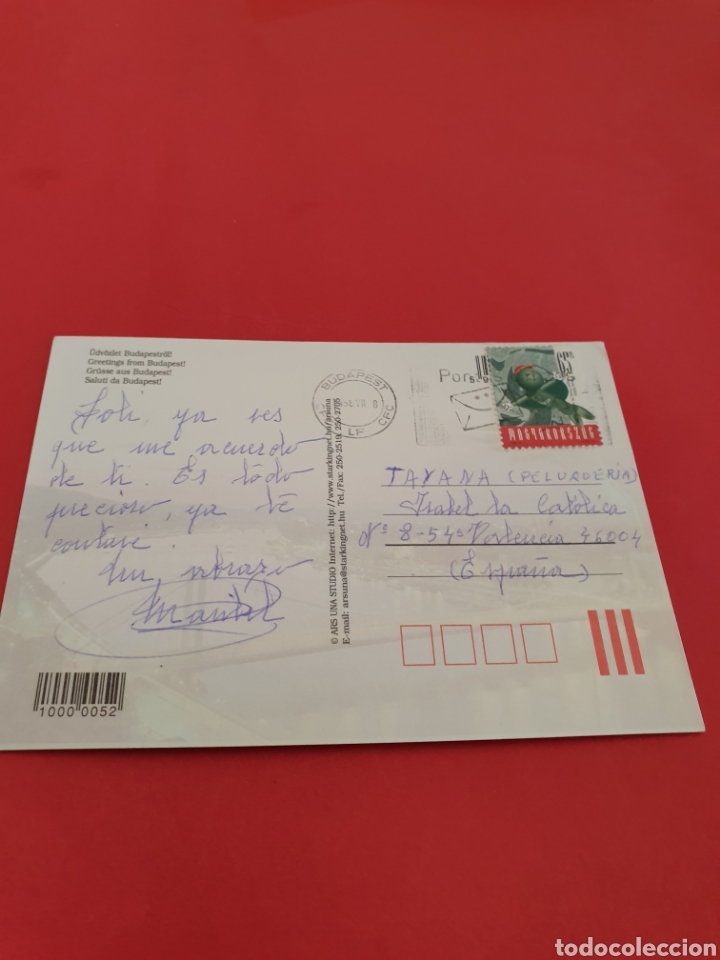 Üdvözlet Budapestről!
Greetings from Budapest!
Grüsse aus Budapest!
Saluti da Budapest!
ya ves
que me acuerdo
de ti. Es todo
precioso, ya te
contaré.
Un abrazo
1000 0052
© ARS UNA STUDIO Internet: http://www.starkingnet.hu/arsuna
E-mail: arsuna@starkingnet.hu Tel./Fax: 250-2519, 250-2705
BUDAPEST
CFC
MAGYARORSZÁG
TAYANA (PELUQUERIA)
Isabel la Católica
Nº 8-5 Valencia 46004
(España)
todocoleccion